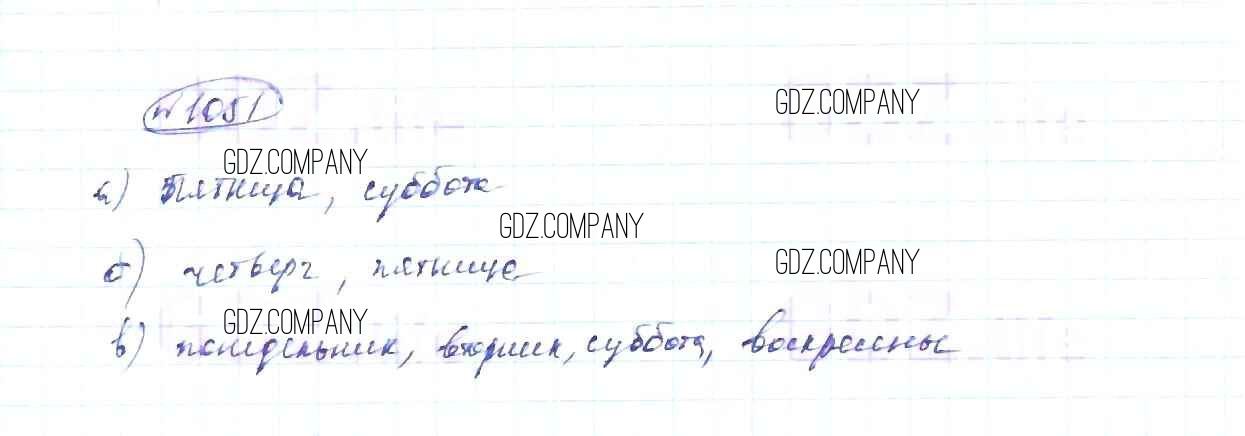 №1051
GDZ.COMPANY
GDZ.COMPANY
а) пятница, суббота
GDZ.COMPANY
б) четверг, пятница
GDZ.COMPANY
GDZ.COMPANY
в) понедельник, вторник, суббота, воскресенье